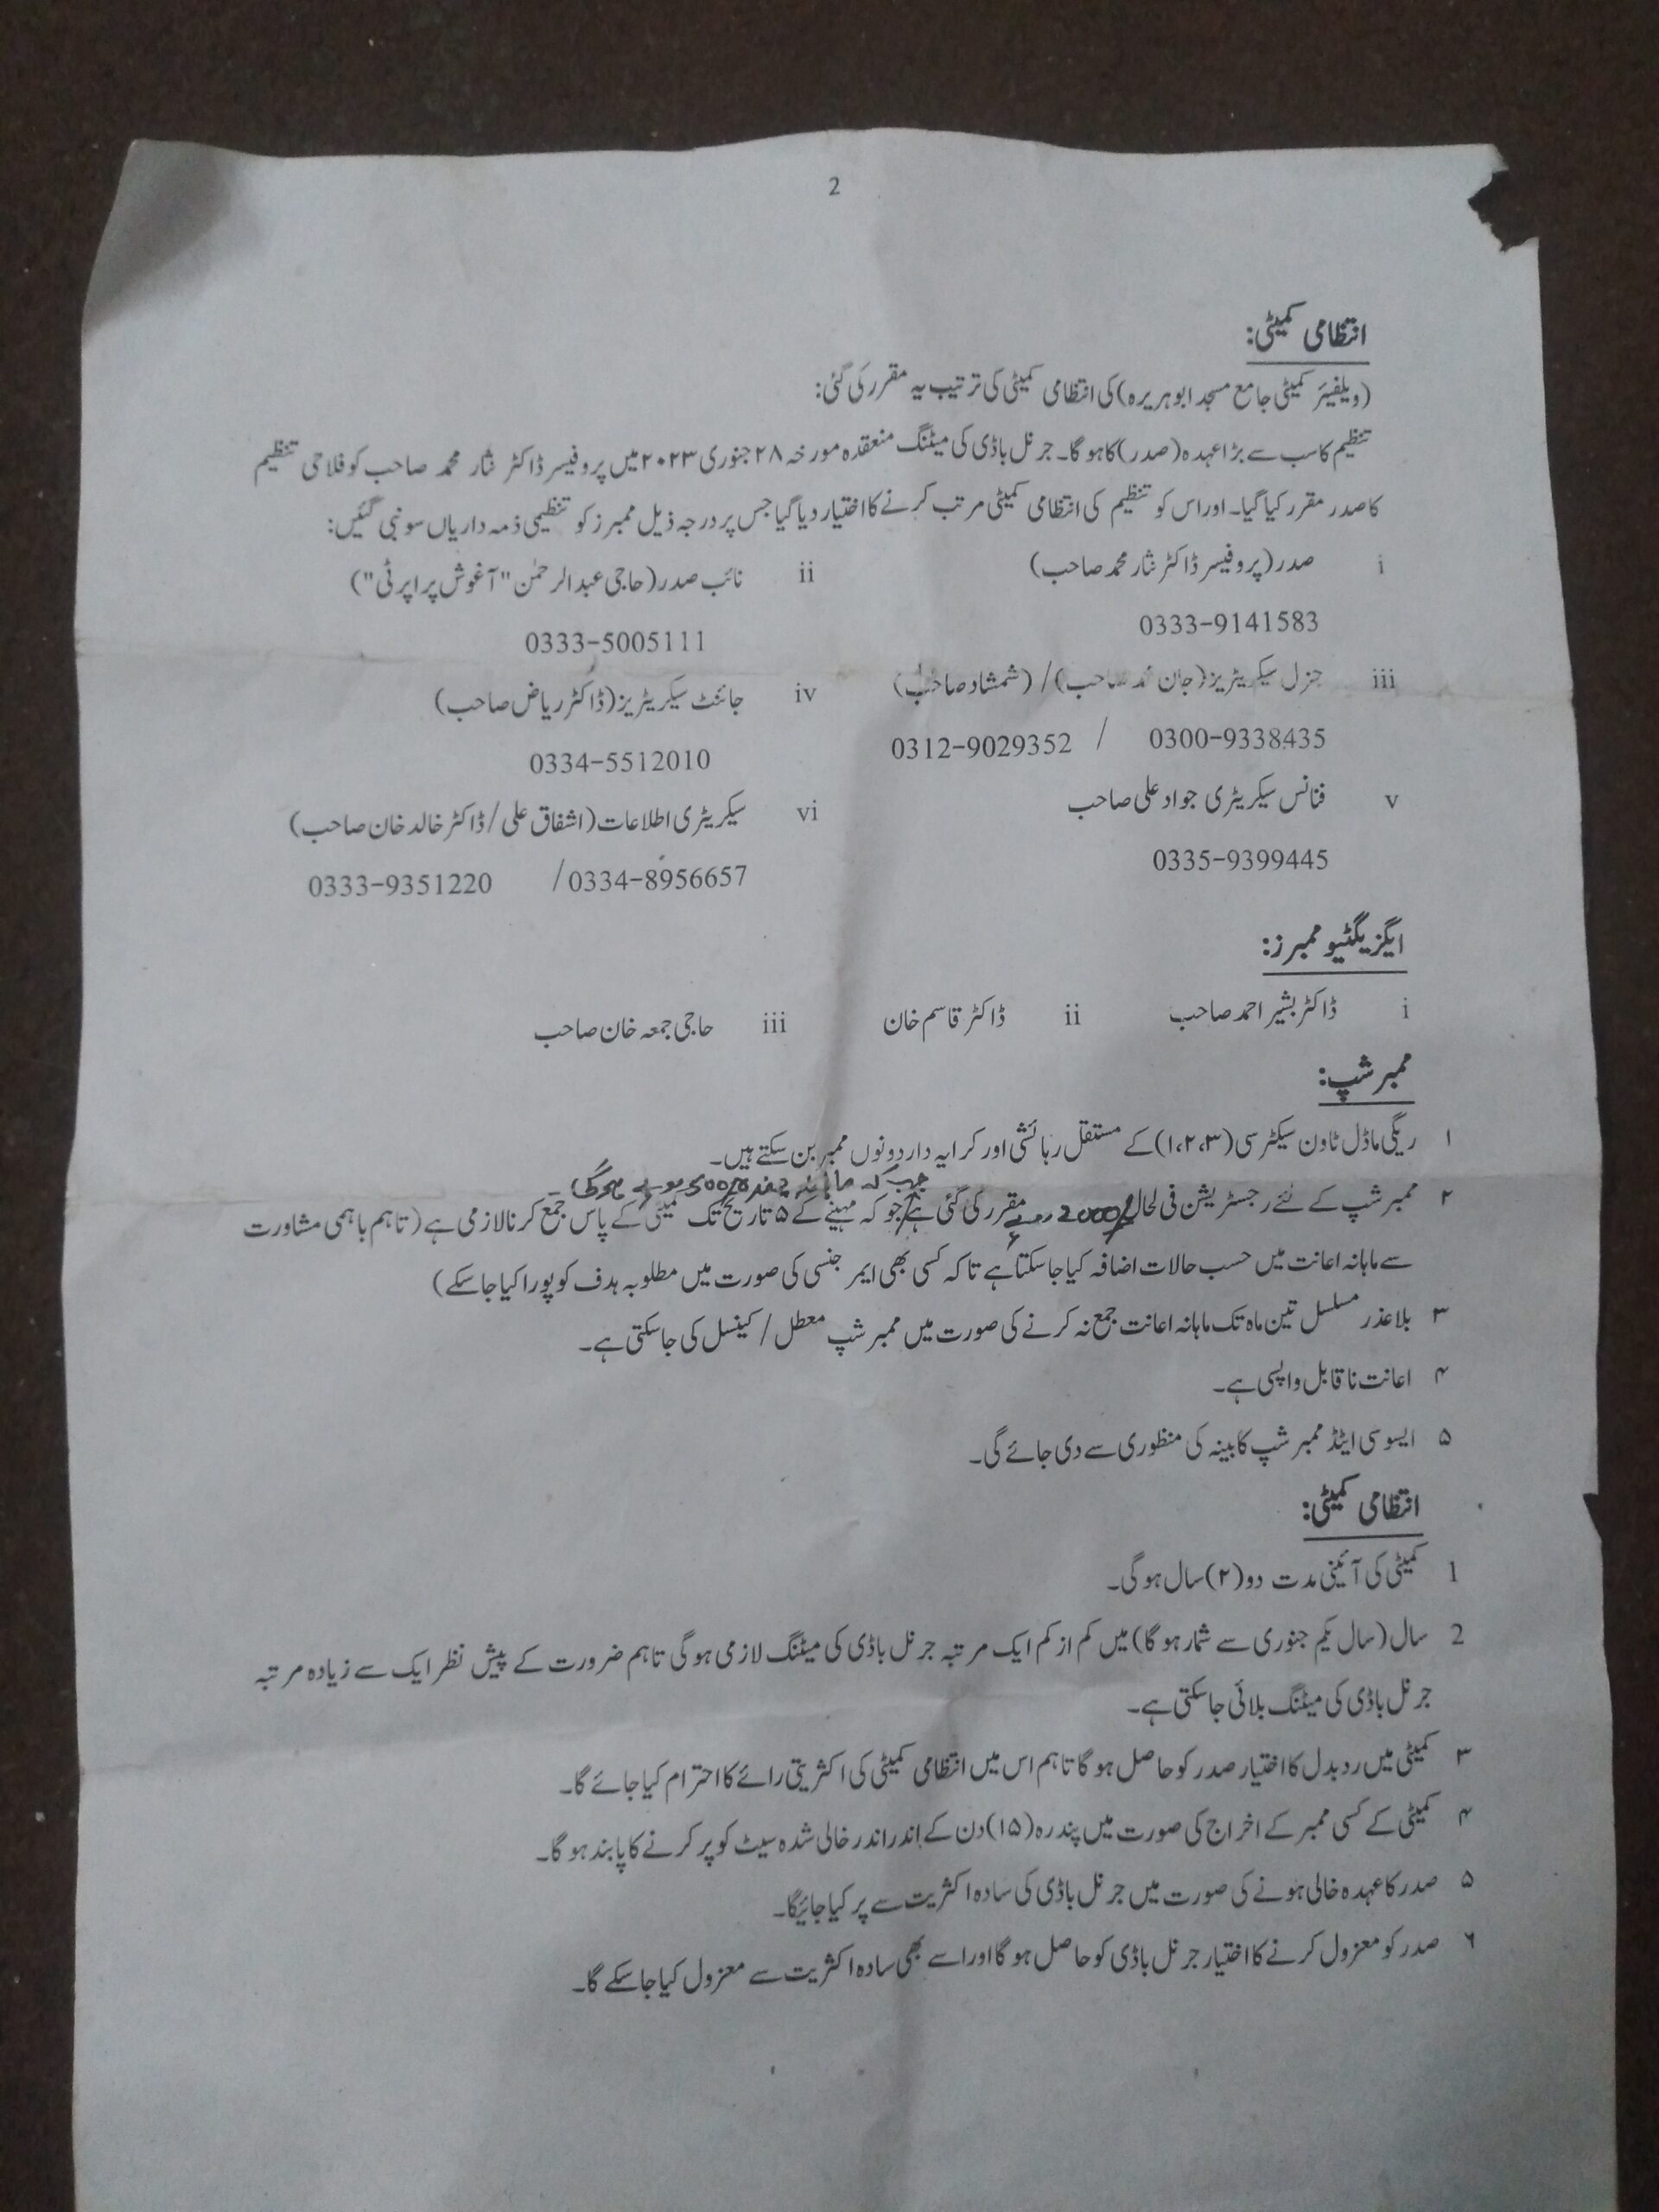 2
انتظامی کمیٹی:
(ویلفیئر کمیٹی جامع مسجد ابوہریرہ) کی انتظامی کمیٹی کی ترتیب یہ مقرر کی گئی:
تنظیم کا سب سے بڑا عہدہ (صدر) کا ہو گا۔ جرنل باڈی کی میٹنگ منعقدہ مورخہ ۲۸ جنوری ۲۰۲۳ میں پروفیسر ڈاکٹر نثار محمد صاحب کو فلاحی تنظیم
کا صدر مقرر کیا گیا۔ اور اس کو تنظیم کی انتظامی کمیٹی مرتب کرنے کا اختیار دیا گیا جس پر درجہ ذیل ممبرز کو تنظیمی ذمہ داریاں سونپی گئیں:
i صدر (پروفیسر ڈاکٹر نثار محمد صاحب) ii نائب صدر (حاجی عبدالرحمٰن "آغوش پراپرٹی")
0333-9141583 0333-5005111
iii جنرل سیکریٹریز (جان محمد صاحب) / (شمشاد صاحب) iv جائنٹ سیکریٹریز (ڈاکٹر ریاض صاحب)
0300-9338435 / 0312-9029352 0334-5512010
v فنانس سیکریٹری جواد علی صاحب vi سیکریٹری اطلاعات (اشفاق علی / ڈاکٹر خالد خان صاحب)
0335-9399445 0334-8956657 / 0333-9351220
ایگزیگٹیو ممبرز:
i ڈاکٹر بشیر احمد صاحب ii ڈاکٹر قاسم خان iii حاجی جمعہ خان صاحب
ممبر شپ:
۱ ریگی ماڈل ٹاون سیکٹر سی (۱،۲،۳) کے مستقل رہائشی اور کرایہ دار دونوں ممبر بن سکتے ہیں۔
جب کہ ماہانہ چندہ 500 روپے ہوگی۔
۲ ممبر شپ کے لئے رجسٹریشن فی الحال 2000 روپے مقرر کی گئی ہے جو کہ مہینے کے ۵ تاریخ تک کمیٹی کے پاس جمع کرنا لازمی ہے (تاہم باہمی مشاورت
سے ماہانہ اعانت میں حسب حالات اضافہ کیا جا سکتا ہے تاکہ کسی بھی ایمر جنسی کی صورت میں مطلوبہ ہدف کو پورا کیا جا سکے)
۳ بلا عذر مسلسل تین ماہ تک ماہانہ اعانت جمع نہ کرنے کی صورت میں ممبر شپ معطل / کینسل کی جا سکتی ہے۔
۴ اعانت نا قابل واپسی ہے۔
۵ ایسوسی ایٹڈ ممبر شپ کابینہ کی منظوری سے دی جائے گی۔
انتظامی کمیٹی:
1 کمیٹی کی آئینی مدت دو (۲) سال ہوگی۔
2 سال (سال یکم جنوری سے شمار ہو گا) میں کم از کم ایک مرتبہ جرنل باڈی کی میٹنگ لازمی ہو گی تاہم ضرورت کے پیش نظر ایک سے زیادہ مرتبہ
جرنل باڈی کی میٹنگ بلائی جا سکتی ہے۔
۳ کمیٹی میں ردبدل کا اختیار صدر کو حاصل ہو گا تاہم اس میں انتظامی کمیٹی کی اکثریتی رائے کا احترام کیا جائے گا۔
۴ کمیٹی کے کسی ممبر کے اخراج کی صورت میں پندرہ (۱۵) دن کے اندر اندر خالی شدہ سیٹ کو پر کرنے کا پابند ہو گا۔
۵ صدر کا عہدہ خالی ہونے کی صورت میں جرنل باڈی کی سادہ اکثریت سے پر کیا جائیگا۔
۶ صدر کو معزول کرنے کا اختیار جرنل باڈی کو حاصل ہو گا اور اسے بھی سادہ اکثریت سے معزول کیا جا سکے گا۔